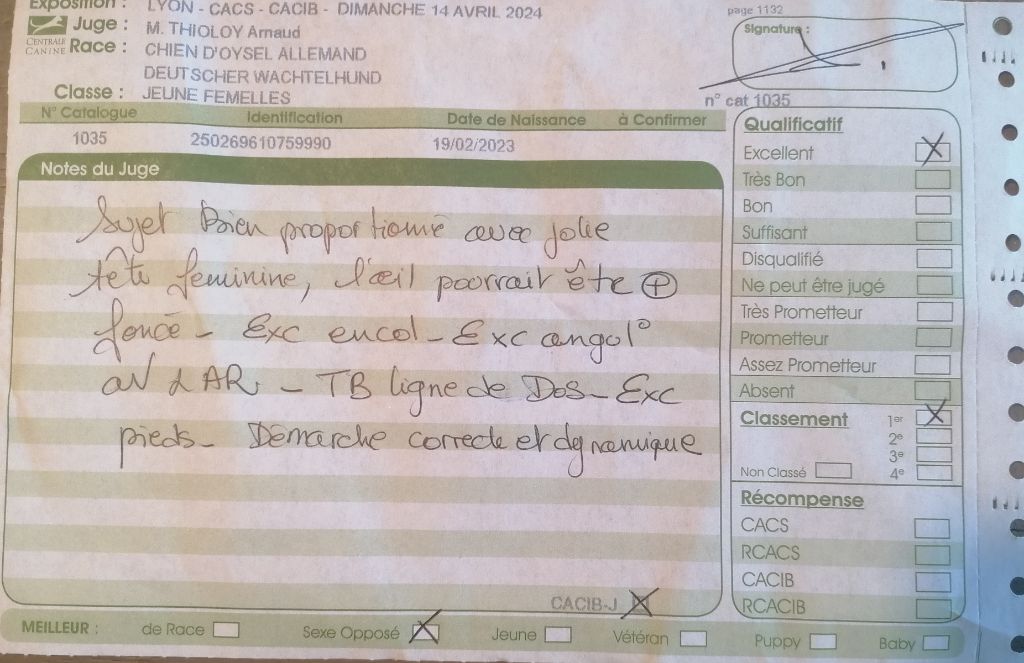 Exposition : LYON - CACS - CACIB - DIMANCHE 14 AVRIL 2024
Juge : M. THIOLOY Arnaud
CENTRALE CANINE
Race : CHIEN D'OYSEL ALLEMAND
DEUTSCHER WACHTELHUND
Classe : JEUNE FEMELLES
page 1132
Signature :
n° cat 1035
N° Catalogue Identification Date de Naissance à Confirmer
1035 250269610759990 19/02/2023
Notes du Juge
Sujet Bien proportionné avec jolie
tête feminine, l'œil pourrait ête ⊕
foncé - Exc encol - Exc angul°
AV & AR - TB ligne de Dos - Exc
pieds - Démarche correcte et dynamique
CACIB-J X
Qualificatif
Excellent X
Très Bon
Bon
Suffisant
Disqualifié
Ne peut être jugé
Très Prometteur
Prometteur
Assez Prometteur
Absent
Classement 1er X
2e
3e
Non Classé 4e
Récompense
CACS
RCACS
CACIB
RCACIB
MEILLEUR : de Race Sexe Opposé X Jeune Vétéran Puppy Baby